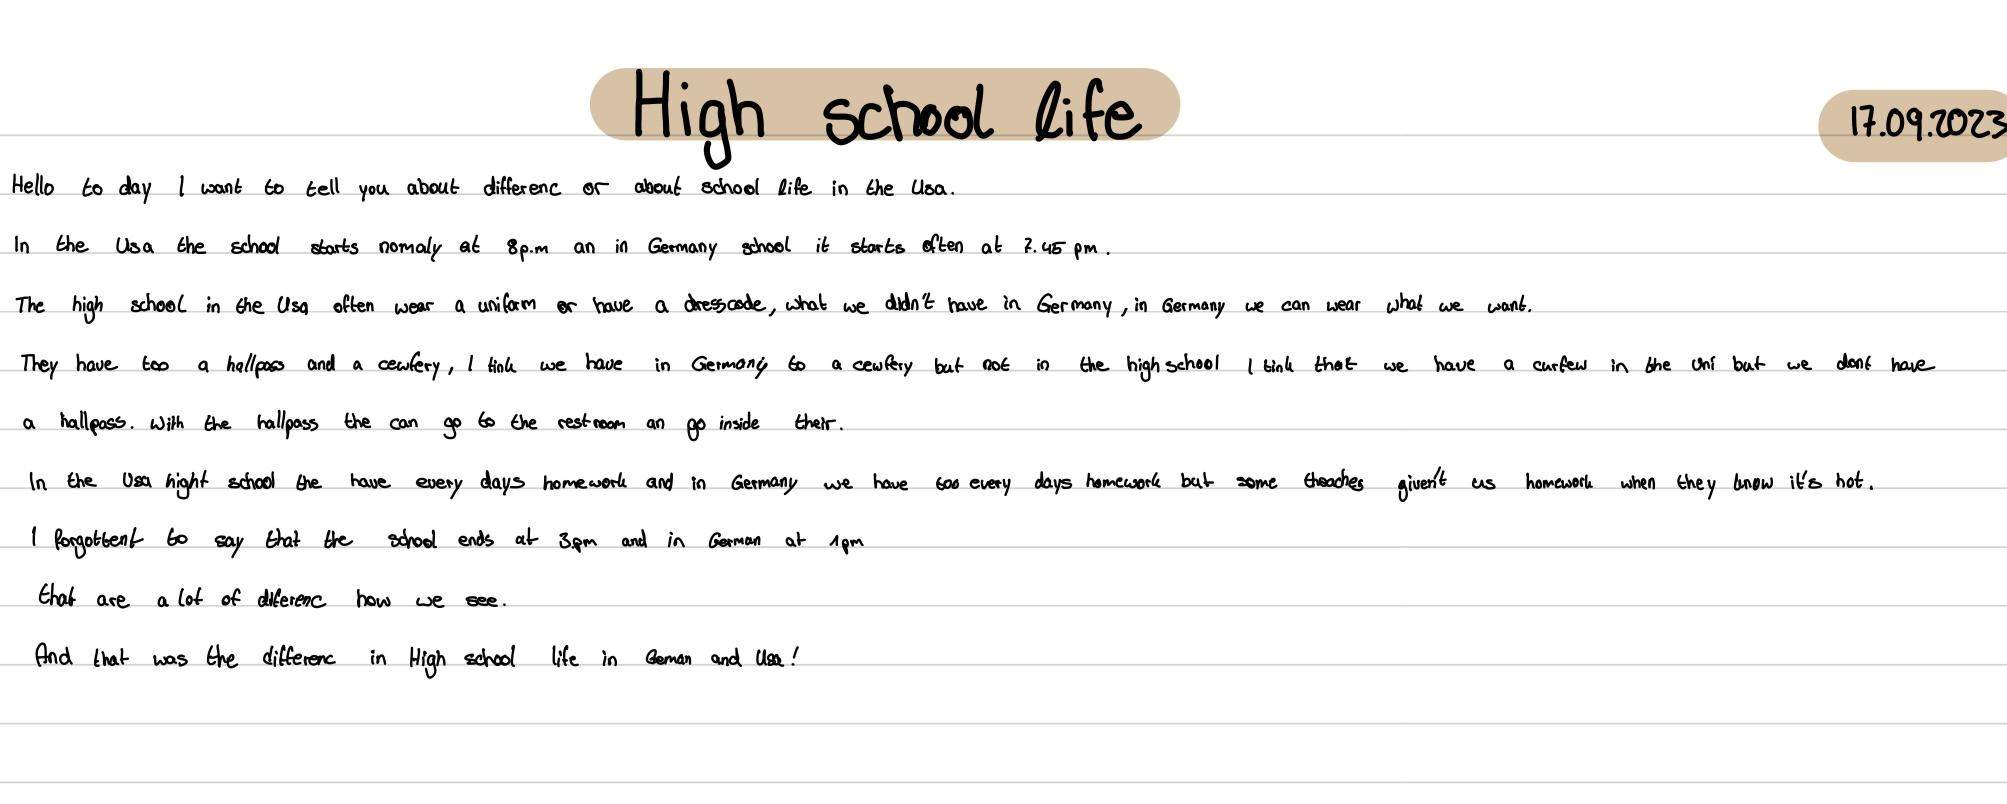 High school life
17.09.2023
Hello to day I want to tell you about differenc or about school life in the Usa.
In the Usa the school starts nomaly at 8p.m an in Germany school it starts often at 7.45 pm.
The high school in the Usa often wear a uniform or have a dresscode, what we didn't have in Germany, in Germany we can wear what we want.
They have too a hallpass and a cewfery, I tink we have in Germany to a cewfery but not in the high school I tink that we have a curfew in the Uni but we dont have
a hallpass. With the hallpass the can go to the restroom an go inside their.
In the Usa hight school the have every days homework and in Germany we have too every days homework but some theaches given't us homework when they know it's hot.
I forgottent to say that the school ends at 3pm and in German at 1pm
that are a lot of diferenc how we see.
And that was the differenc in High school life in Geman and Usa!